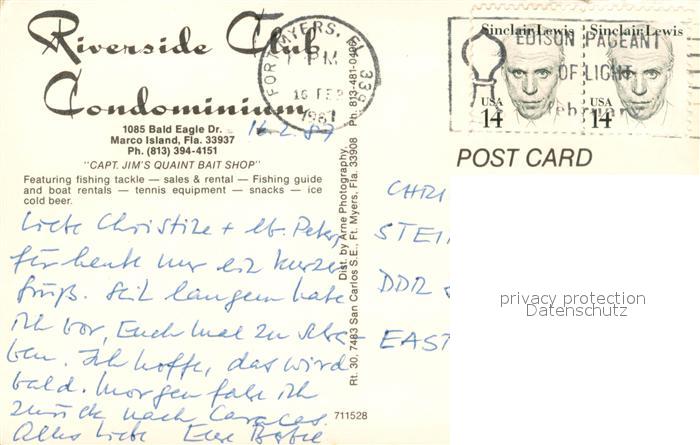 Riverside Club
Condominium
1085 Bald Eagle Dr.
Marco Island, Fla. 33937
Ph. (813) 394-4151
"CAPT. JIM'S QUAINT BAIT SHOP"
Featuring fishing tackle — sales & rental — Fishing guide
and boat rentals — tennis equipment — snacks — ice
cold beer.
16.2.87
Liebe Christine + lb. Peter,
für heute nur ein kurzer
Gruß. Seit langem habe
ich vor, Euch mal zu schrei-
ben. Ich hoffe, das wird
bald. Morgen fahre ich
zurück nach Caracas.
Alles Liebe Eure
711528
Dist. by Arne Photography,
Rt. 30, 7483 San Carlos S.E., Ft. Myers, Fla. 33908 Ph. 813-481-0406
FORT MYERS, FL 339
PM
16 FEB
1987
EDISON PAGEANT
OF LIGHT
February
Sinclair Lewis
USA
14
Sinclair Lewis
USA
14
POST CARD
CHRI
STEI
DDR
EAST
privacy protection
Datenschutz